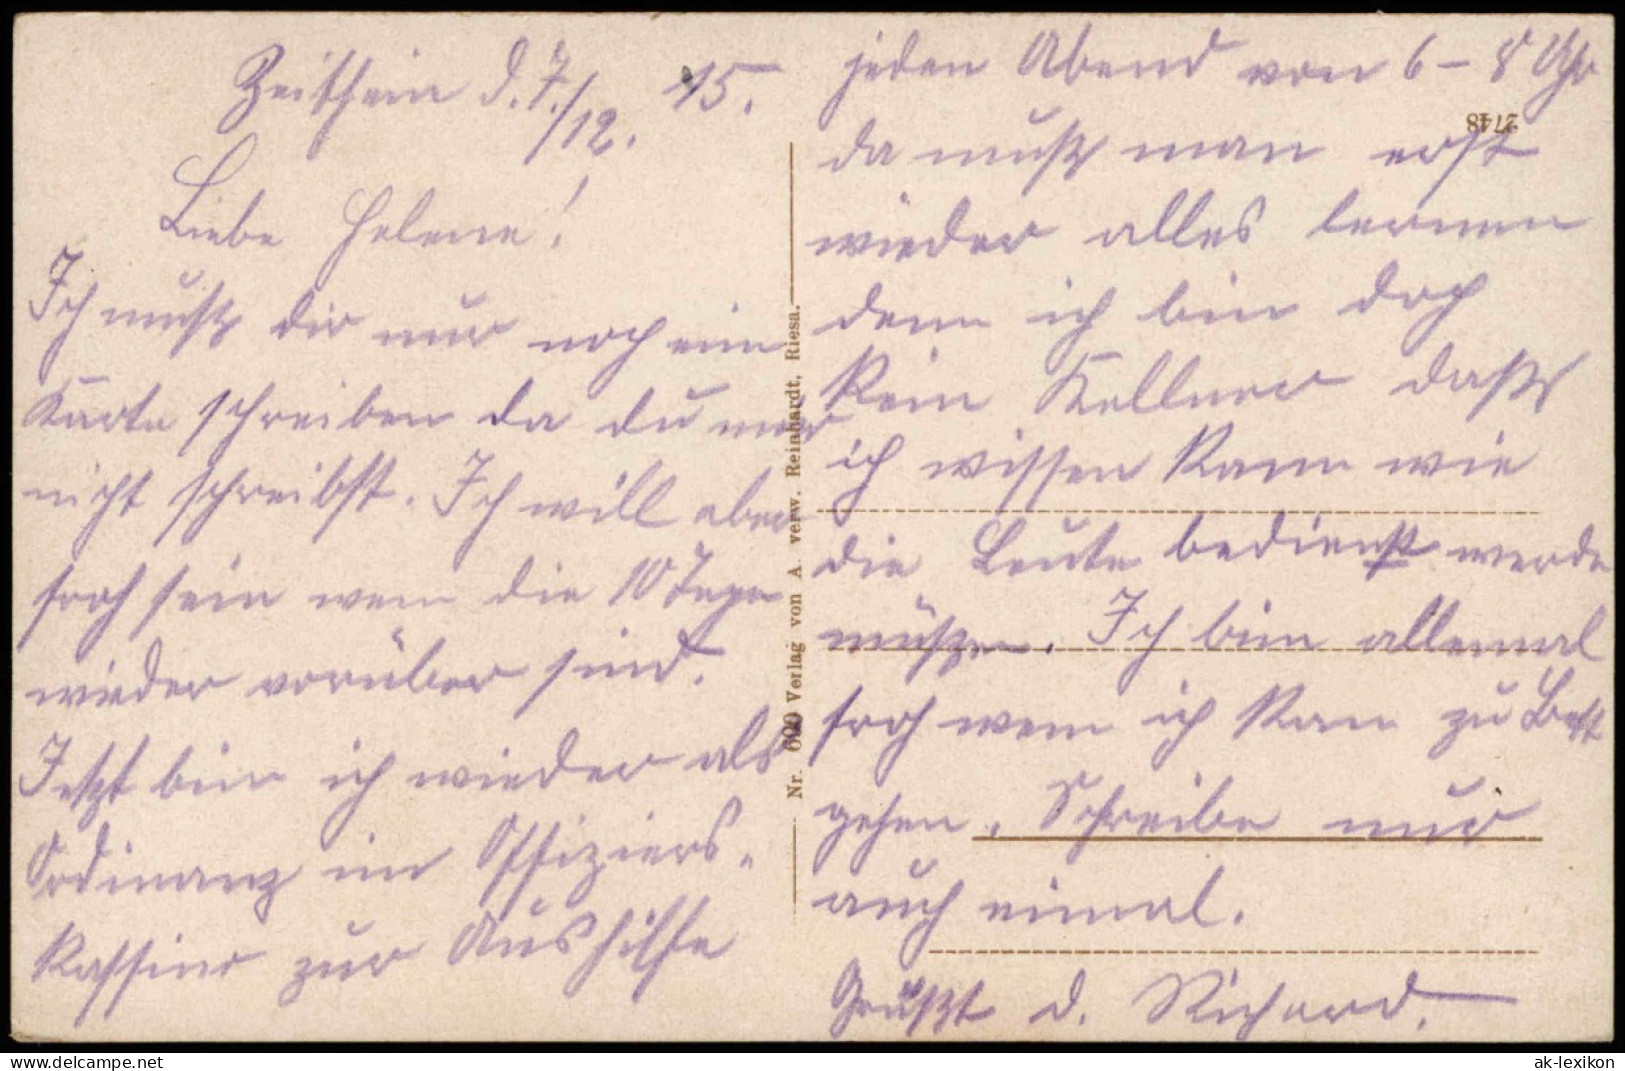 Zeithein d. 7./12. 15.
Liebe Helene!
Ich muß dir nur noch ein
Karte schreiben da du mir
nicht schreibst. Ich will aber
froh sein wenn die 10 Tage
wieder vorüber sind.
Jetzt bin ich wieder als
Ordinanz im Offiziers-
kassino zur Aushilfe
Nr. 600 Verlag von A. verw. Reinhardt, Riesa.
jeden Abend von 6 – 8 Uhr
2748
da muß man erst
wieder alles lernen
denn ich bin doch
kein Kellner daß
ich wissen kann wie
die Leute bedienst werde
müßen. Ich bin allemal
froh wenn ich kann zu Bett
gehen. Schreibe nur
auch einmal.
Grüßt d. Richard.
www.delcampe.net
ak-lexikon